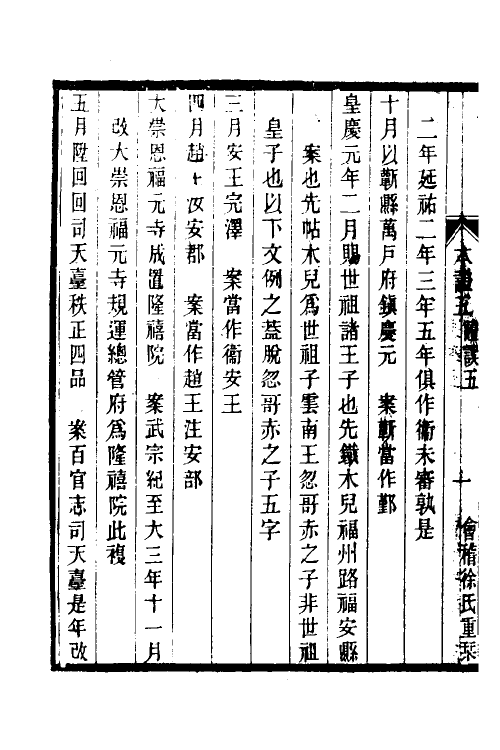 二年延祐二年三年五年俱作衞未審孰是
十月以蘄縣萬戸府鎭慶元　案蘄當作鄞
皇慶元年二月賜世祖諸王子也先鐵木兒福州路福安縣
案也先帖木兒爲世祖子雲南王忽哥赤之子非世祖
皇子也以下文例之蓋脫忽哥赤之子五字
三月安王完澤　案當作衞安王
四月趙　汝安郡　案當作趙王注安部
大崇恩福元寺成置隆禧院　案武宗紀至大三年十一月
改大崇恩福元寺規運總管府爲隆禧院此複
五月陞回回司天臺秩正四品　案百官志司天臺是年改
會稽徐氏重栞